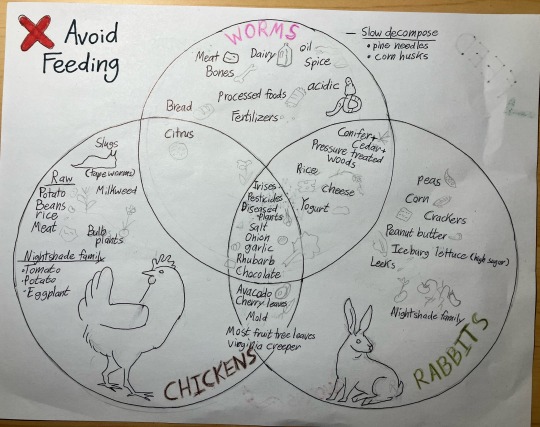 Avoid
Feeding
WORMS
Slow decompose
• pine needles
• corn husks
Meat
Bones
Dairy
oil
Spice
acidic
Processed foods
Fertilizers
Bread
Citrus
Conifer +
Cedar +
Pressure treated
woods
Rice
cheese
Yogurt
Slugs
(tape worms)
Raw
Potato
Beans
rice
Meat
Milkweed
Bulb
plants
Nightshade family
• Tomato
• Potato
• Eggplant
CHICKENS
Irises
Pesticides
Diseased
plants
Salt
Onion
garlic
Rhubarb
Chocolate
Avacado
Cherry leaves
Mold
Most fruit tree leaves
Virginia creeper
peas
Corn
Crackers
Peanut butter
Iceburg lettuce (high sugar)
Leeks
Nightshade family
RABBITS